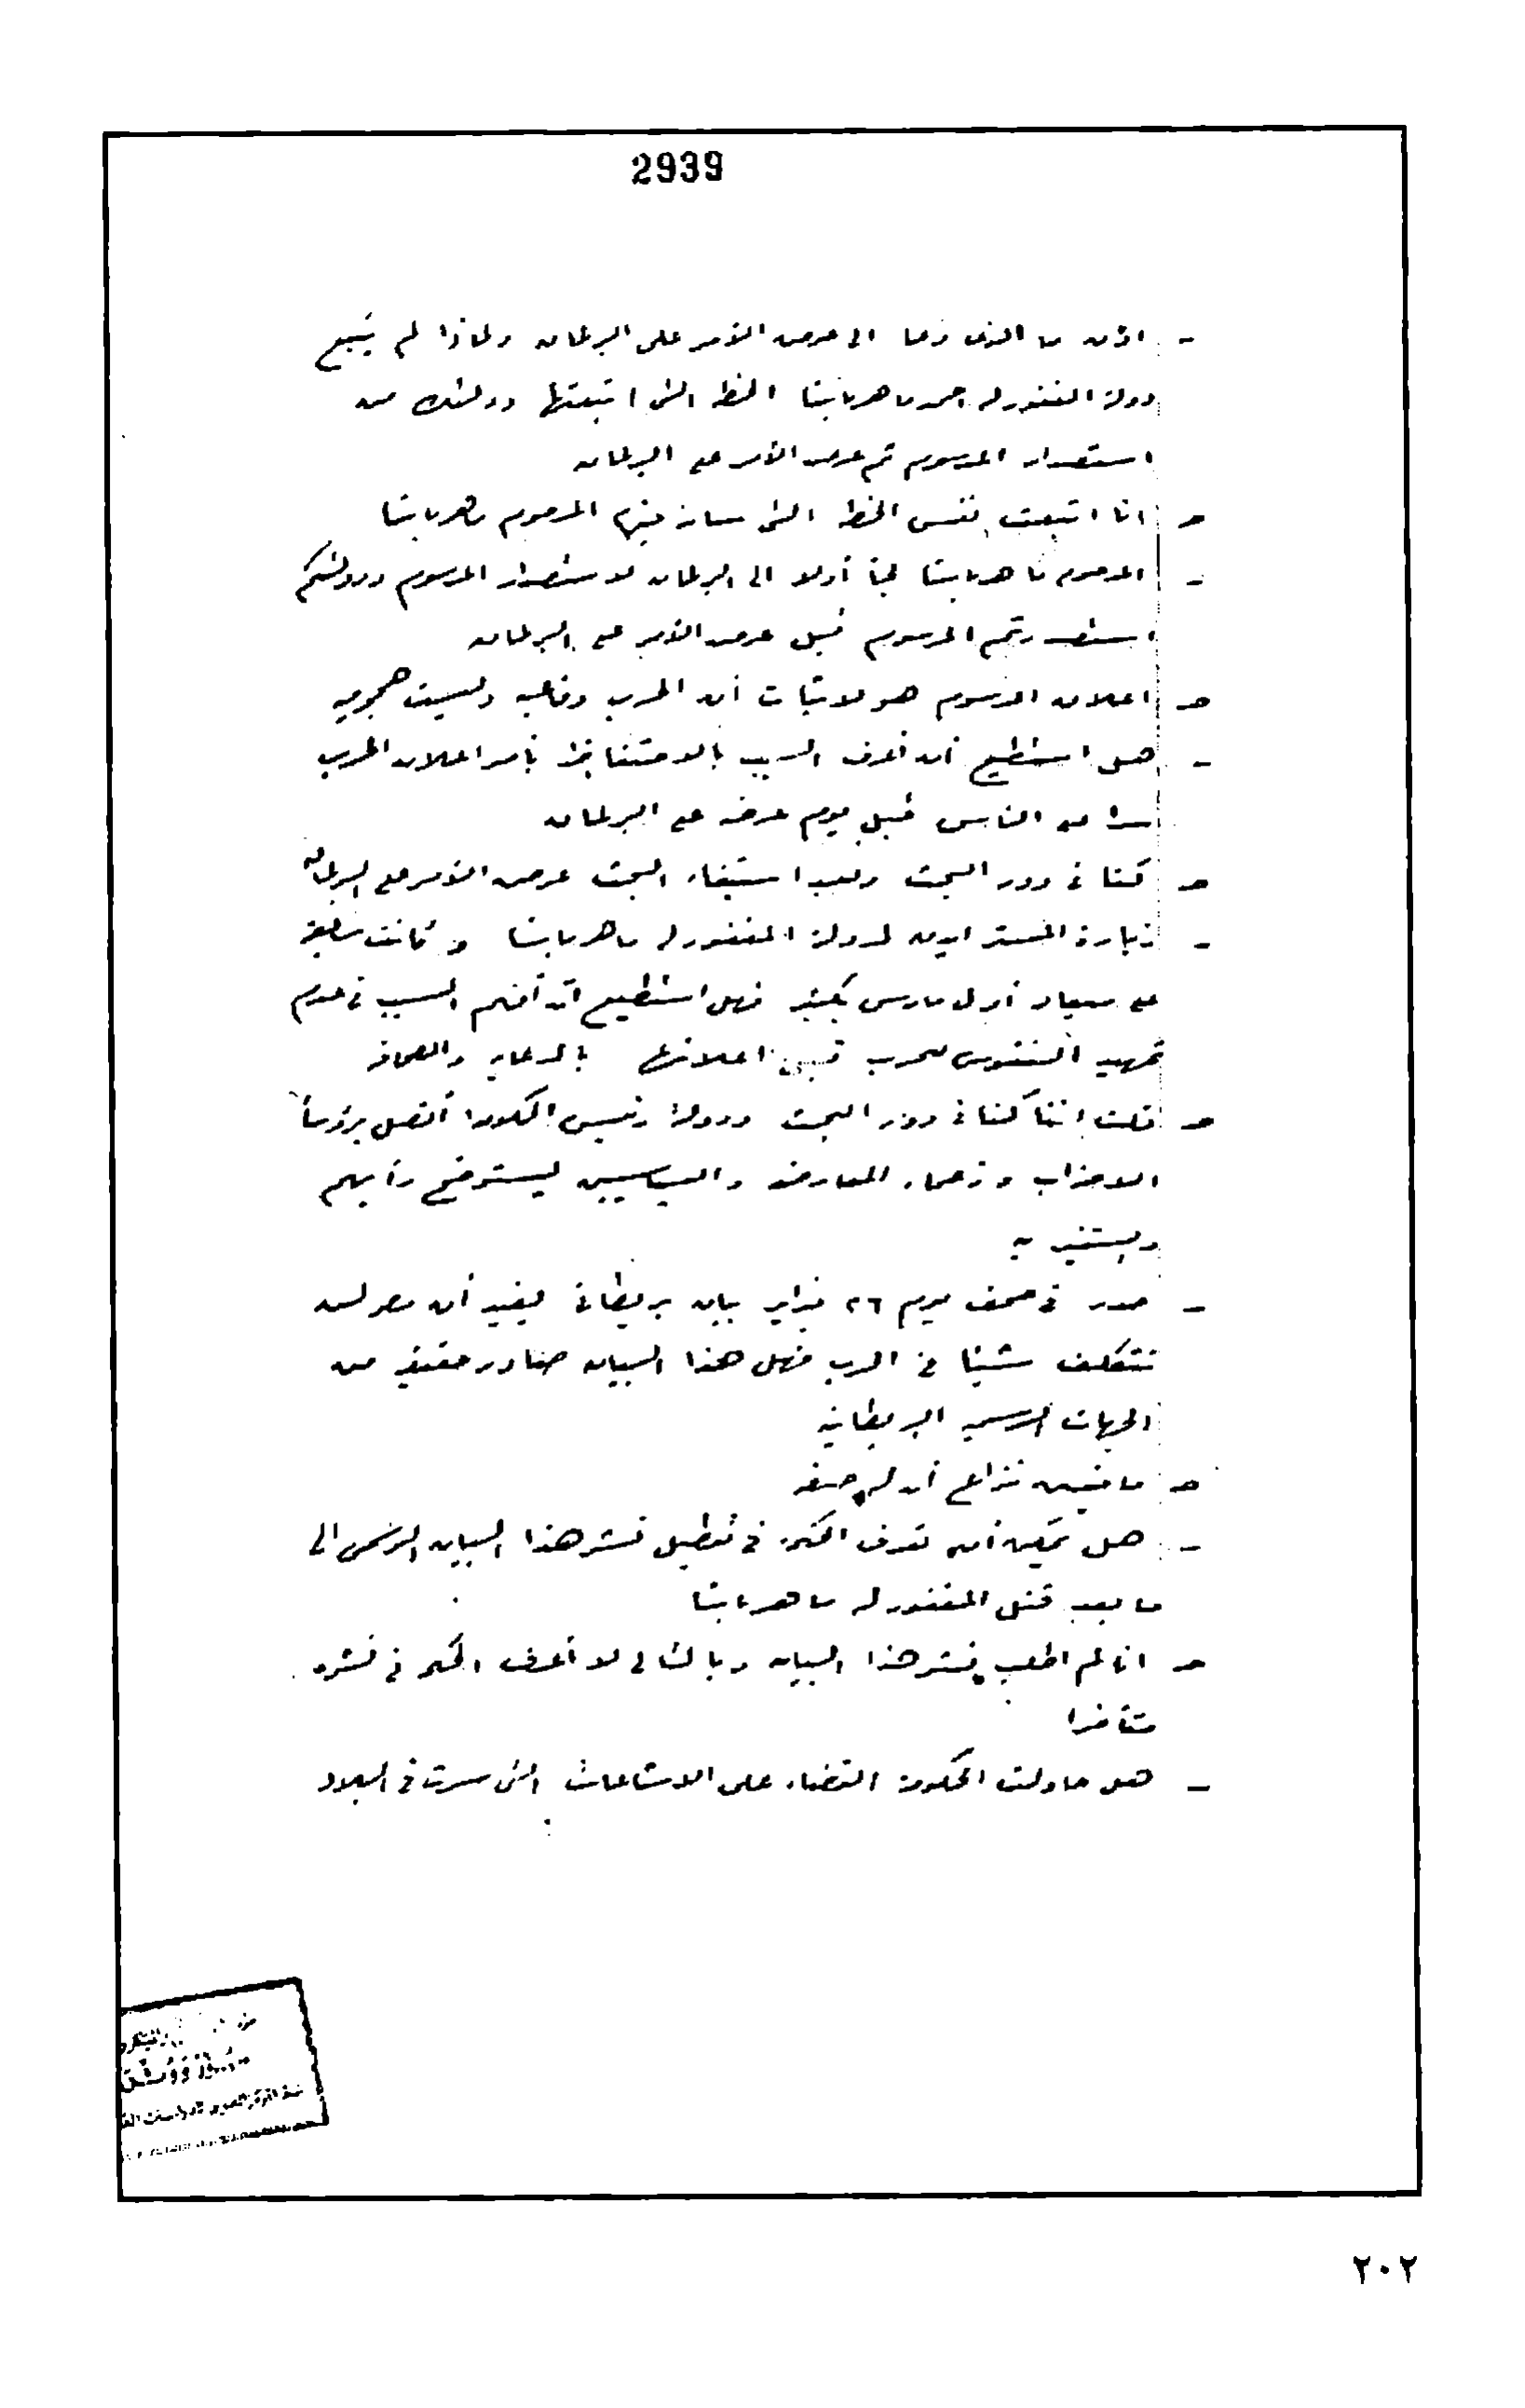 2939
- اذن ما الذى دعا الى عرض الأمر على البرلمان ولماذا لم يتبع
دولة المغفور له احمد ماهر باشا الخطة التى اتبعتها دولتك من
استصدار المرسوم ثم عرض الأمر على البرلمان
حـ انا اتبعت نفس الخطة التى سار فيها المرحوم ماهر باشا
- المرحوم ماهر باشا لجأ أولا الى البرلمان لاستصدار المرسوم ودولتكم
استصدرتم المرسوم قبل عرض الأمر على البرلمان
حـ اعلان المرسوم هو لاثبات أن الحرب دفاعية وليست هجومية
- هل استطيع أن أعرف السبب بالاحتفاظ بأمر اعلان الحرب
سرا عن الناس قبل يوم عرضه على البرلمان
حـ كنا فى دور البحث وبعد استيفاء البحث عرض الأمر على البرلمان
- زيارة المستر ايدن لدولة المغفور له ماهر باشا وكانت سابقة
على ميعاد أول مارس بكثير فهل استطيع أن أفهم السبب فى عدم
تمهيد النفوس للحرب قبل اعلانها بالدعاية والصحافة
حـ قلت اننا كنا فى دور البحث ودولة رئيس الحكومة أتصل برؤساء
الاحزاب وزعماء المعارضة والسياسيين ليستوضح رأيهم
ويستنير به
- صدر فى صحف يوم ٢٦ فبراير بيان بريطانى يفيد أن مصر لن
تتكلف شيئا فى الحرب فهل هذا البيان صادر حقيقة من
الجهات الرسمية البريطانية
حـ مافيش نزاع أن له صفة
- هل يمكن أن نعرف الحكمة فى تعطيل نشر هذا البيان الرسمى الى
ما بعد قتل المغفور له ماهر باشا
حـ انا لم اطلب نشر هذا البيان وبالتالى لا أعرف الحكمة فى نشره
متأخرا
- هل حاولت الحكومة القضاء على الاشاعات التى سرت فى البلاد
٢٠٢